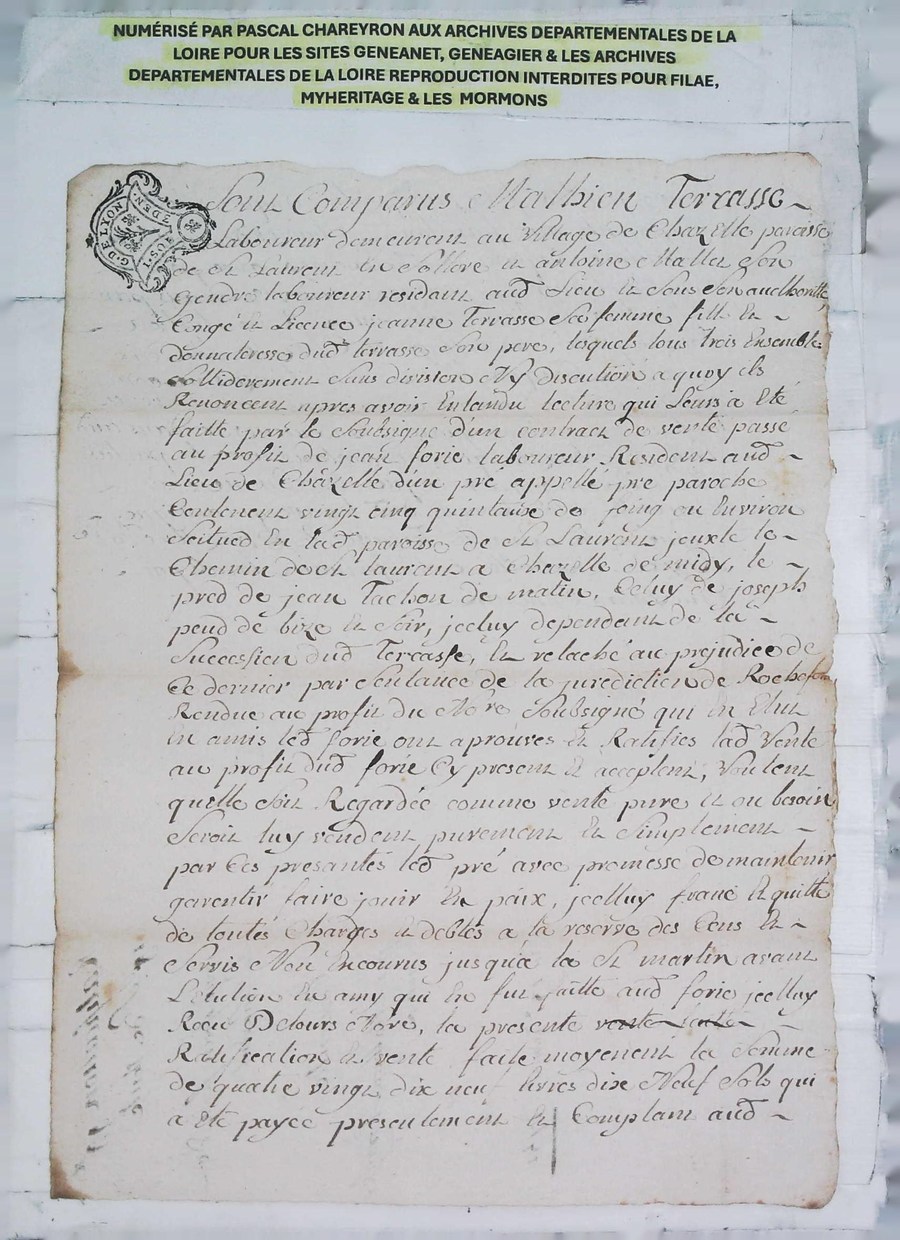 NUMÉRISÉ PAR PASCAL CHAREYRON AUX ARCHIVES DEPARTEMENTALES DE LA
LOIRE POUR LES SITES GENEANET, GENEAGIER & LES ARCHIVES
DEPARTEMENTALES DE LA LOIRE REPRODUCTION INTERDITES POUR FILAE,
MYHERITAGE & LES MORMONS
G. DE LYON
Sont Comparus Mathieu Terrasse
Laboureur demeurent au village de Chazelle paroisse
de St Laurent En Sollore et antoine Mallet Son
Gendre laboureur residant aud Lieu et Sous Son authoritte
Congé et Licence jeanne Terrasse Sa femme fille Et
donnateresse dud terrasse Son pere, lesquels tous trois Ensemble
Sollidairement Sans division Ny discution a quoy ils
Renoncent apres avoir Entandu lecture qui Leurs a Eté
faitte par le Soubsigne d'un contract de vente passé
au profit de jean forie laboureur Resident aud
Lieu de Chazelle d'un pré appellé pré paroche
Contenent vingt cinq quintaux de foing ou Environ
Scitued En lad paroisse de St Laurent jouxte le
Chemin de St laurent a Chazelle de midy, le
pred de jean Tachon de matin, Celuy de joseph
peud de bize et Soir, jceluy dependant de la
Succession dud Terrasse, Et relaché au prejudice de
Ce dernier par Sentance de la jurediction de Rochefort
Rendue au profit du Nore Soubsigné qui en Elut
En amis led forie ont aprouvés Et Ratifiés lad Vente
au profit dud forie Cy present Et acceptent, voulent
quelle Soit Regardée comme vente pure et au besoin
Seroit luy vendent purement Et Simplement
par Ces presantes led pré avec promesse de maintenir
garentir faire jouir En paix, jcelluy franc Et quitte
de toutes Charges et debtes a la reserve des Cens Et
Servis Non Encourus jusqu'a la St martin avant
L'elution En amy qui En fut faitte aud forie jcelluy
Recu Delours Nore, la presente vente
Ratiffication Et vente faite moyenent la Somme
de quatre vingt dix neuf livres dix Neuf Sols qui
a Eté payée presentement Et Comptant aud